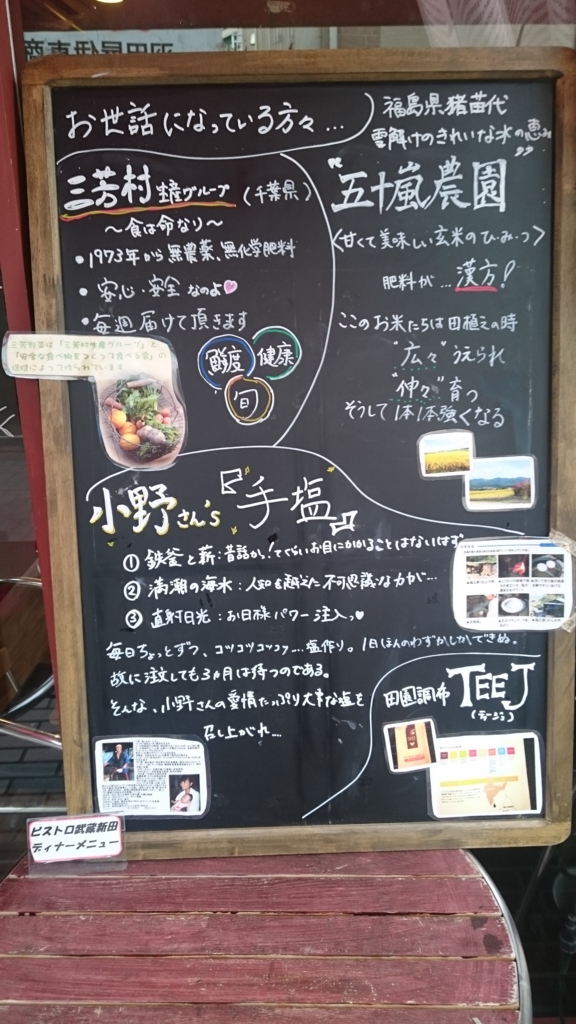 お世話になっている方々…
三芳村 生産グループ (千葉県)
〜食は命なり〜
・1973年から無農薬、無化学肥料
・安心・安全なのよ♥
・毎週届けて頂きます
三芳野菜は「三芳村生産グループ」と
「安全な食べ物をつくって食べる会」の
鮮度
健康
旬
福島県猪苗代
雪解けのきれいな水の恵み
"五十嵐農園"
<甘くて美味しい玄米のひ・み・つ>
肥料が…漢方!
このお米たちは田植えの時
"広々"うえられ
"仲々"育つ
そうして1本1本強くなる
小野さん's『手塩』
① 鉄釜と薪:昔話か!てぐらいお目にかかることはないはず
② 満潮の海水:人知を越えた不可思議な力が…
③ 直射日光:お日様パワー注入♥
毎日ちょっとずつ、コツコツコツコツ…塩作り。1日ほんのわずかしかできぬ。
故に注文しても3ヵ月は待つのである。
そんな、小野さんの愛情たっぷり大事な塩を
召し上がれ…
田園調布 TEEJ
(ティージ)
ビストロ武蔵新田
ディナーメニュー